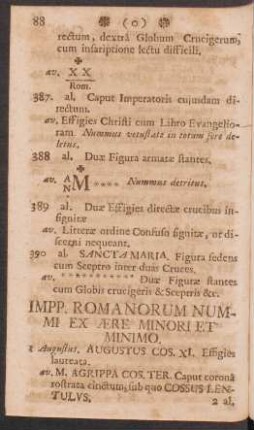 88 ( o )
rectum, dextrâ Globum Crucigerum,
cum insriptione lectu difficili.
av. X X
Rom.
387. al. Caput Imperatoris cujusdam di-
rectum.
av. Effigies Christi cum Libro Evangelio-
ram Nummus vetustate in totum fere de-
letus.
388 al. Duæ Figuræ armatæ stantes.
av. A
N M .... Nummus detritus.
389 al. Duæ Effigies directæ crucibus in-
signitæ
av. Litteræ ordine confuso signitæ, ut di-
scerni nequeant.
390 al. SANCTA MARIA. Figura sedens
cum Sceptro inter duas Cruces.
av. Duæ Figuræ stantes
cum Globis crucigeris & Sceptris &c.
IMPP. ROMANORUM NUM-
MI EX ÆRE MINORI ET
MINIMO.
1 Augustus. AUGUSTUS COS. XI. Effigies
laureata.
av. M. AGRIPPA COS. TER. Caput coronâ
rostrata cinctum, sub quo COSSUS LEN-
TULVS. 2 al.